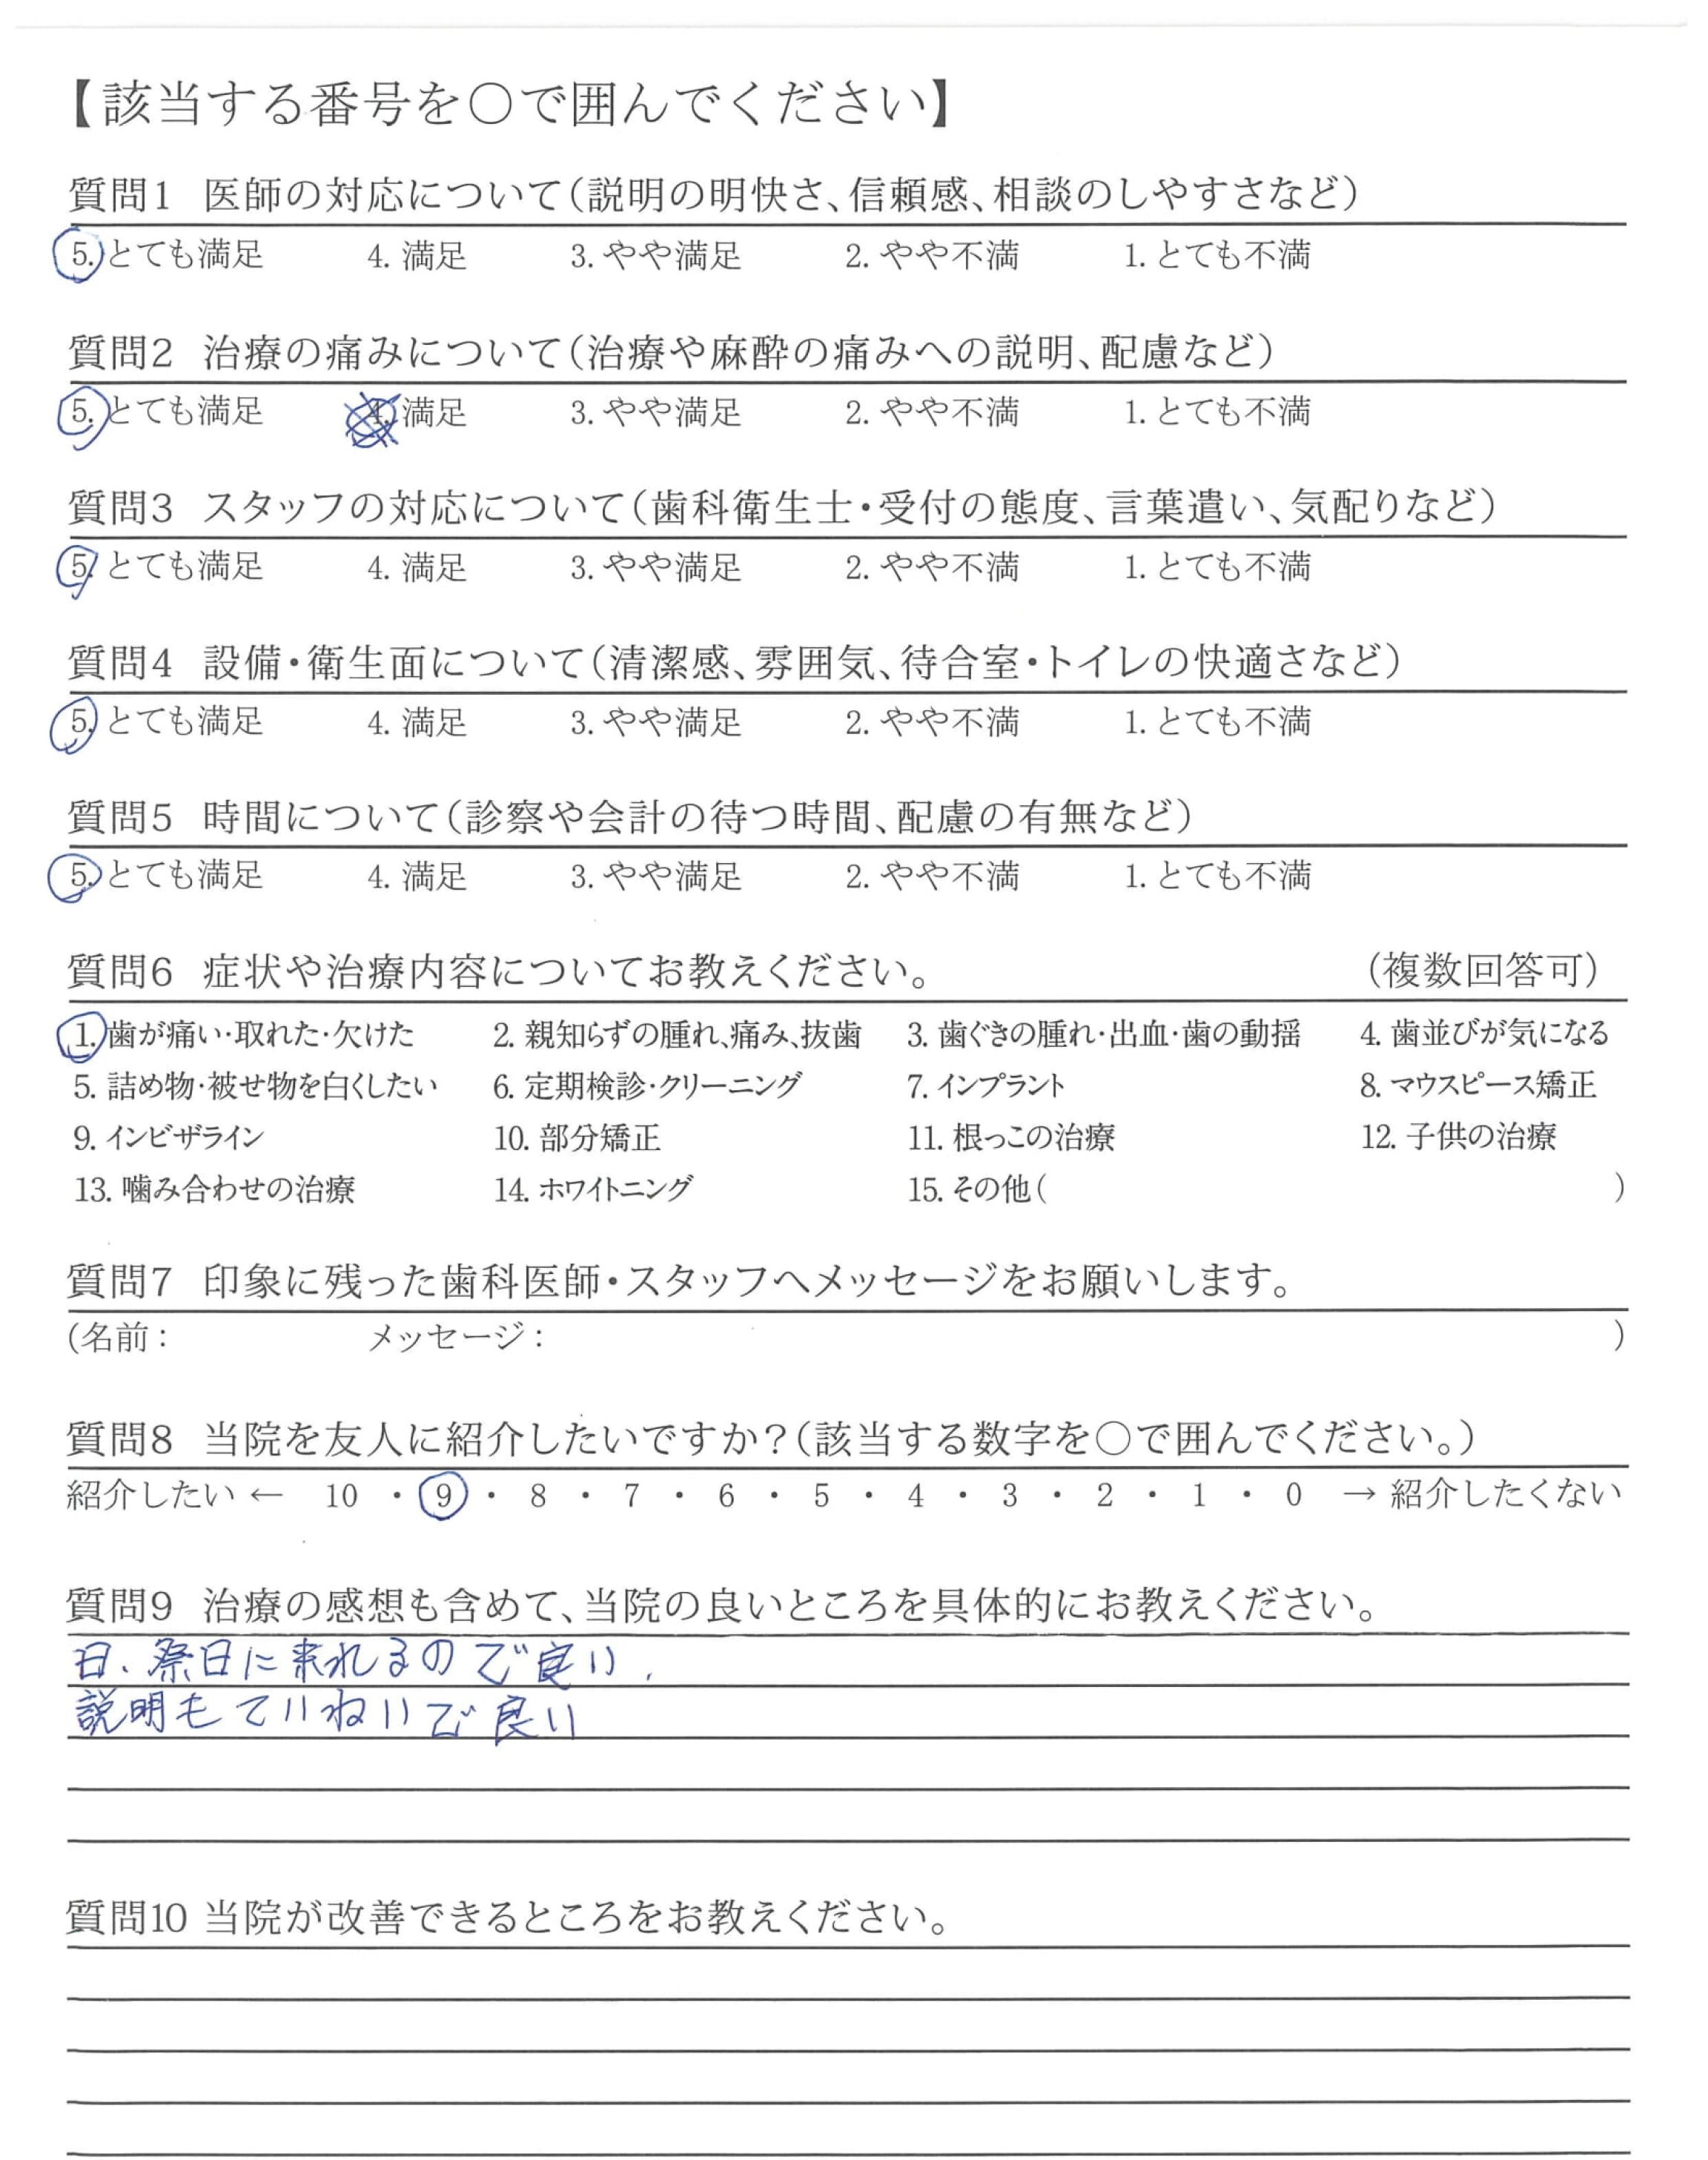 【該当する番号を○で囲んでください】
質問1 医師の対応について(説明の明快さ、信頼感、相談のしやすさなど)
5. とても満足 4. 満足 3. やや満足 2. やや不満 1. とても不満
質問2 治療の痛みについて(治療や麻酔の痛みへの説明、配慮など)
5. とても満足 4. 満足 3. やや満足 2. やや不満 1. とても不満
質問3 スタッフの対応について(歯科衛生士・受付の態度、言葉遣い、気配りなど)
5. とても満足 4. 満足 3. やや満足 2. やや不満 1. とても不満
質問4 設備・衛生面について(清潔感、雰囲気、待合室・トイレの快適さなど)
5. とても満足 4. 満足 3. やや満足 2. やや不満 1. とても不満
質問5 時間について(診察や会計の待つ時間、配慮の有無など)
5. とても満足 4. 満足 3. やや満足 2. やや不満 1. とても不満
質問6 症状や治療内容についてお教えください。 (複数回答可)
1. 歯が痛い・取れた・欠けた 2. 親知らずの腫れ、痛み、抜歯 3. 歯ぐきの腫れ・出血・歯の動揺 4. 歯並びが気になる
5. 詰め物・被せ物を白くしたい 6. 定期検診・クリーニング 7. インプラント 8. マウスピース矯正
9. インビザライン 10. 部分矯正 11. 根っこの治療 12. 子供の治療
13. 噛み合わせの治療 14. ホワイトニング 15. その他( )
質問7 印象に残った歯科医師・スタッフへメッセージをお願いします。
(名前: メッセージ: )
質問8 当院を友人に紹介したいですか?(該当する数字を○で囲んでください。)
紹介したい ← 10 ・ 9 ・ 8 ・ 7 ・ 6 ・ 5 ・ 4 ・ 3 ・ 2 ・ 1 ・ 0 → 紹介したくない
質問9 治療の感想も含めて、当院の良いところを具体的にお教えください。
日、祭日に来れるので良い、
説明もていねいで良い
質問10 当院が改善できるところをお教えください。